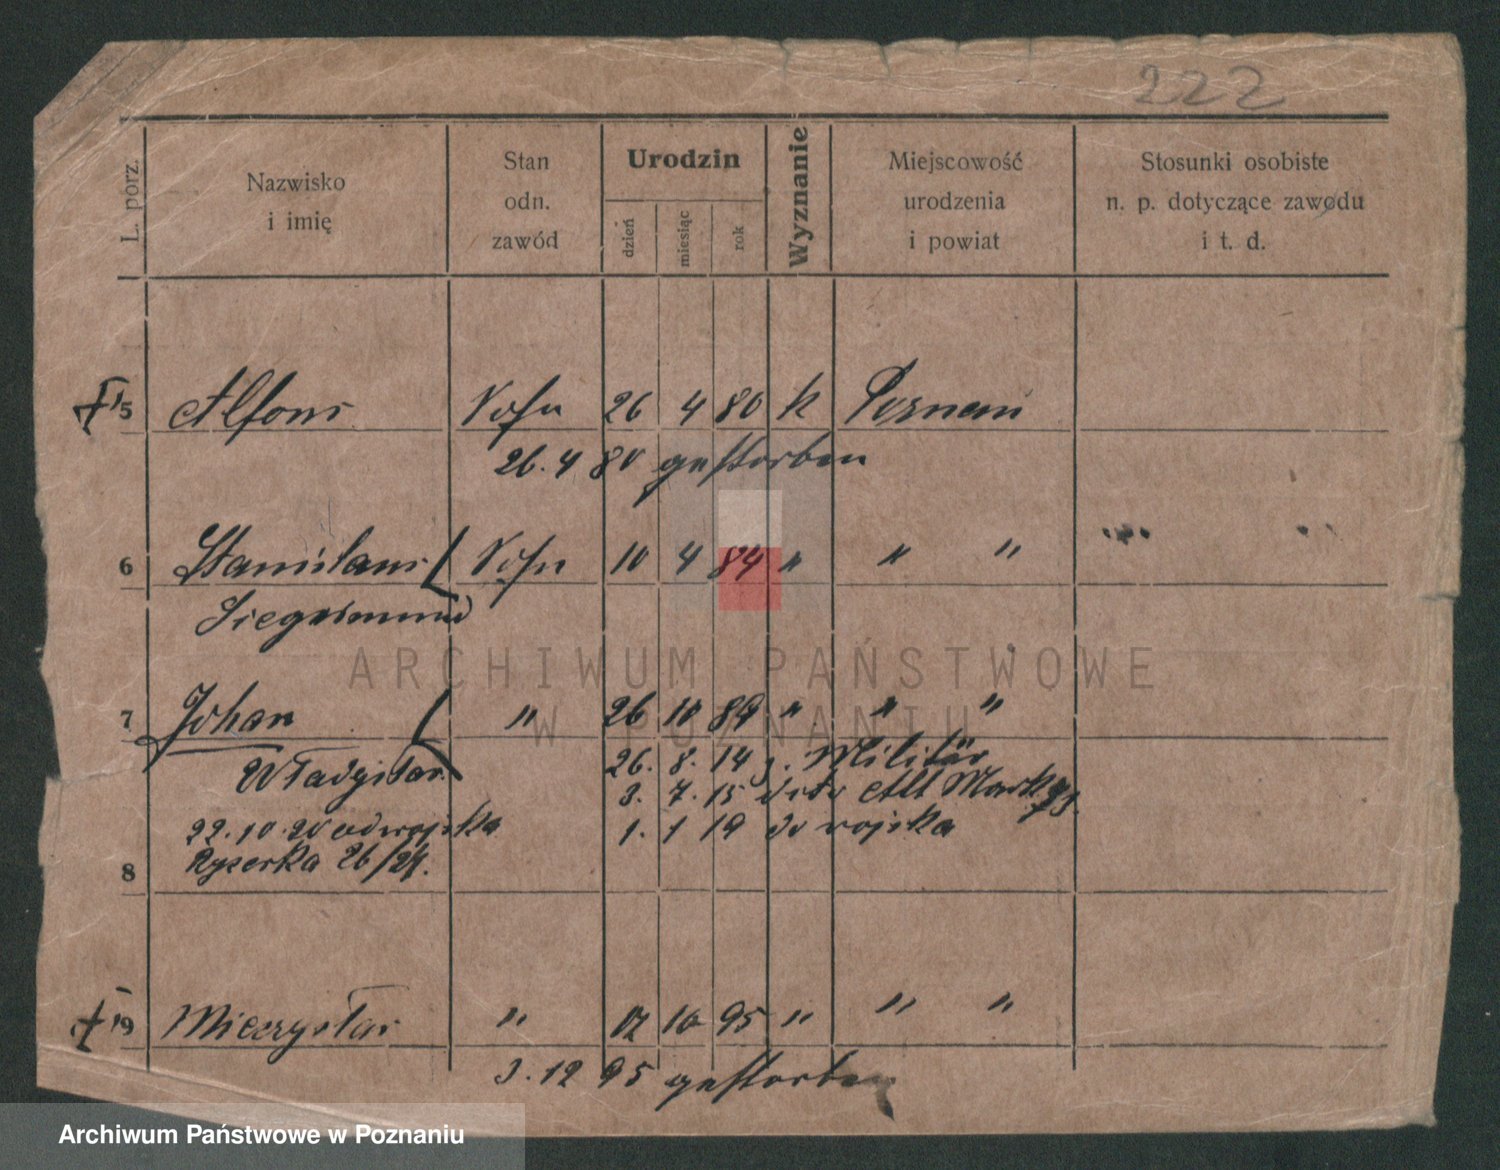 222
L. porz.
Nazwisko
i imię
Stan
odn.
zawód
Urodzin
dzień
miesiąc
rok
Wyznanie
Miejscowość
urodzenia
i powiat
Stosunki osobiste
n. p. dotyczące zawodu
i t. d.
5 Alfons Sohn 26 4 80 k Poznan
26. 4 80 gestorben
6 Stanislaus Sohn 10 4 84 " " "
Siegesmund
7 Johan " 26 10 89 " " "
Władysław 26. 8. 14 z. Militär
3. 7. 15 dito Alt
22.10.20 od wojska 1. 1 19 do wojska
26/24.
8
9 Mieczysław " 10 95 " " "
3. 12 95 gestorben
ARCHIWUM PAŃSTWOWE
W POZNANIU
Archiwum Państwowe w Poznaniu